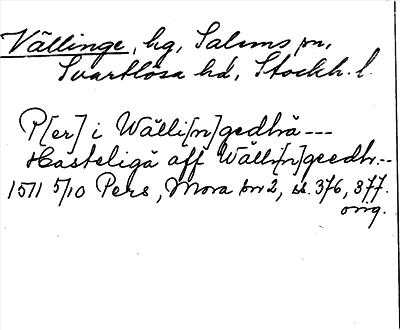 Vällinge, hg, Salems sn,
Svartlösa hd, Stockh. l.
P[er] i Wälli[n]gedhä ---
Hasteligä aff Wälli[n]geedh. --
1511 5/10 Pers, Mora br 2, s. 376, 377.
orig.